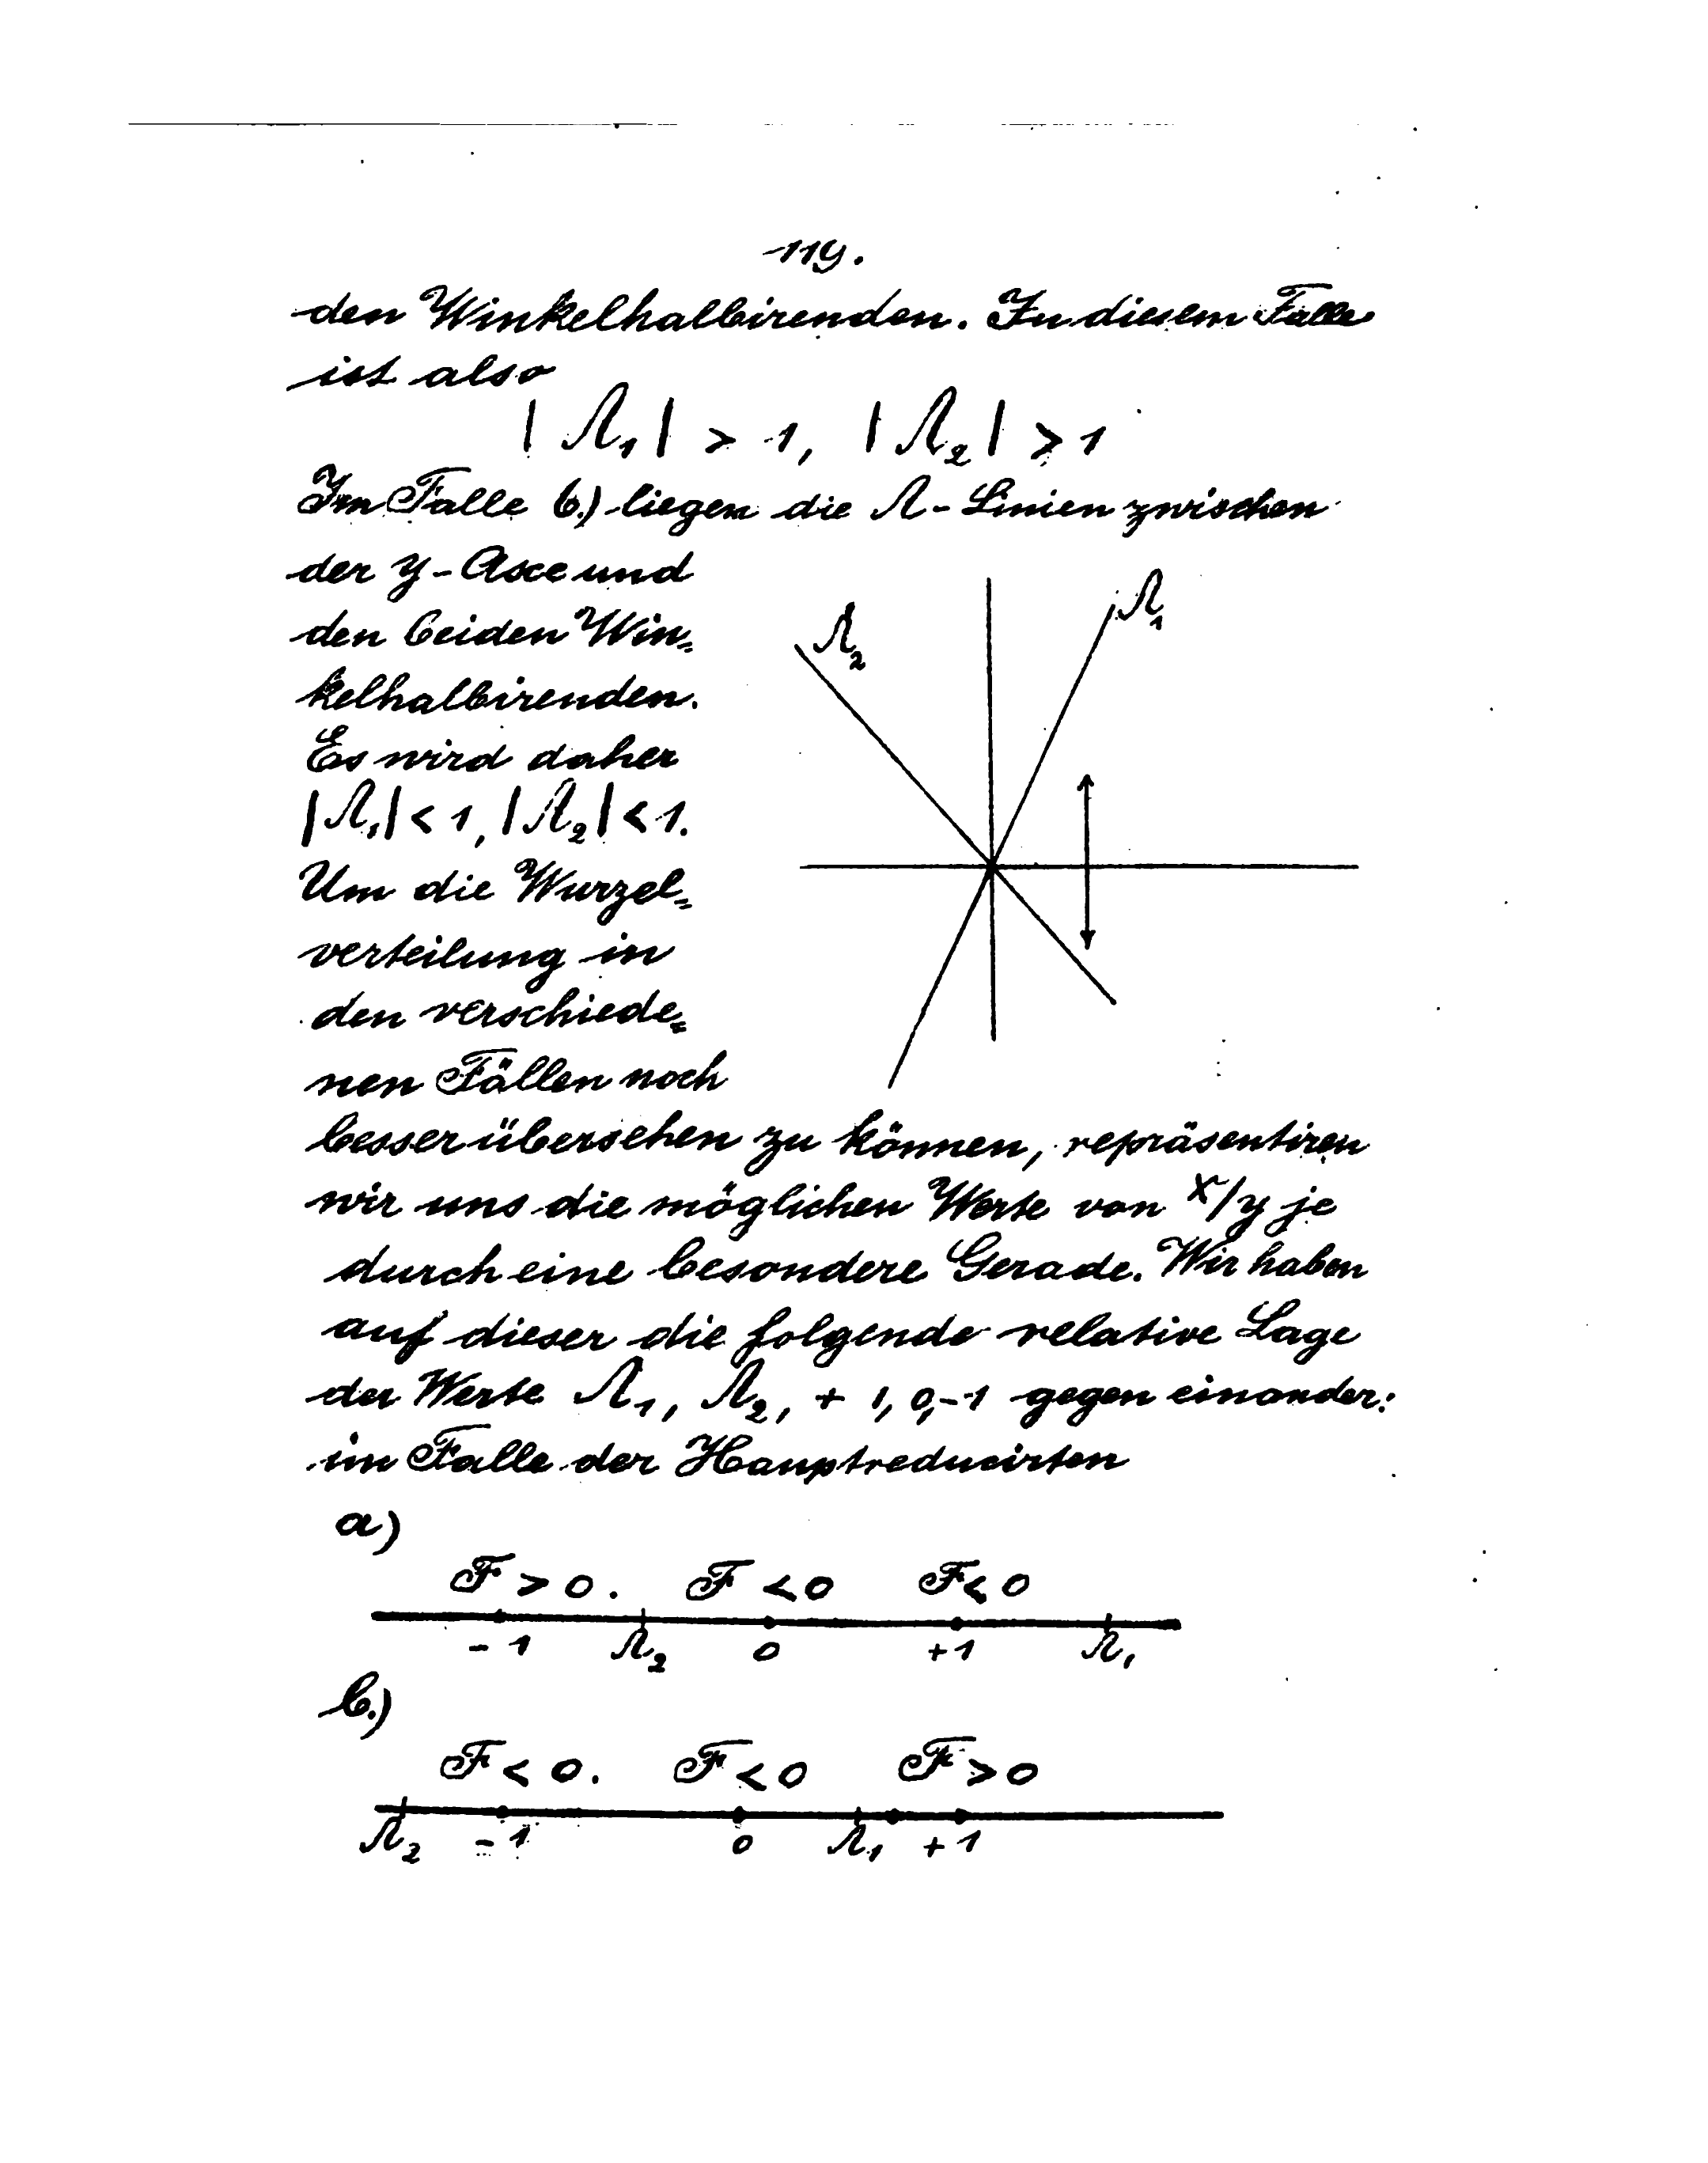 119.
den Winkelhalbirenden. In diesem Falle
ist also
|Λ₁| > 1, |Λ₂| > 1
Im Falle b.) liegen die Λ-Linien zwischen
der y-Axe und
den beiden Win=
kelhalbirenden.
Es wird daher
|Λ₁| < 1, |Λ₂| < 1.
Um die Wurzel=
verteilung in
den verschiede=
nen Fällen noch
Λ₂
Λ₁
besser übersehen zu können, repräsentiren
wir uns die möglichen Werte von x/y je
durch eine besondere Gerade. Wir haben
auf dieser die folgende relative Lage
der Werte Λ₁, Λ₂, + 1, 0, -1 gegen einander:
im Falle der Hauptreducirten
a)
F > 0. F < 0 F < 0
- 1 Λ₂ 0 +1 Λ₁
b.)
F < 0. F < 0 F > 0
Λ₂ - 1 0 Λ₁ + 1